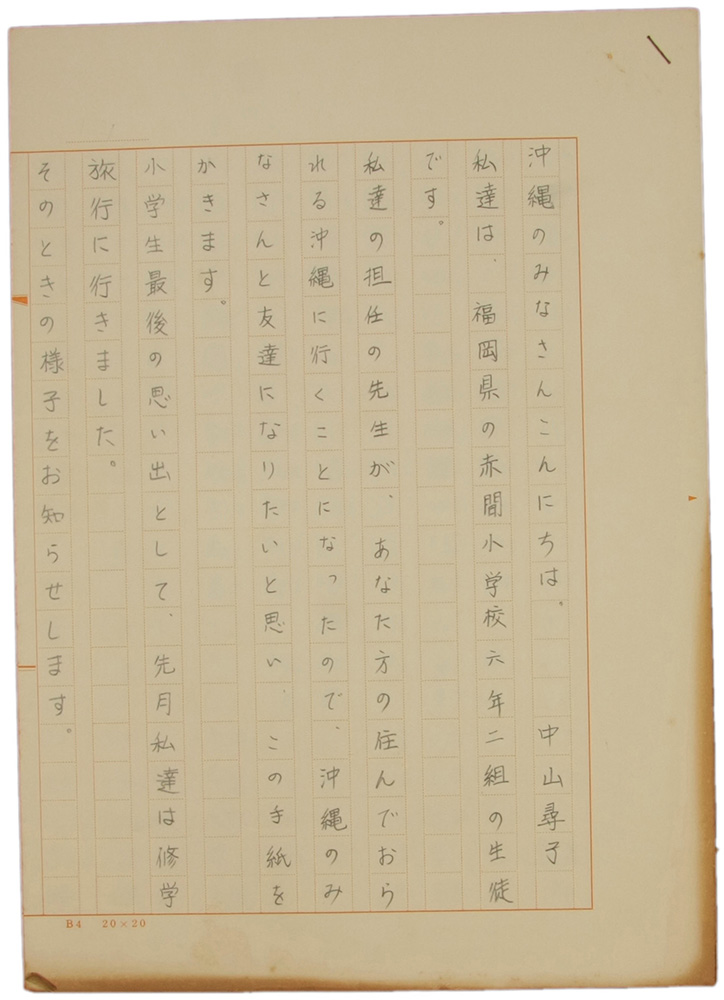 沖縄のみなさんこんにちは。　中山尋子
私達は、福岡県の赤間小学校六年二組の生徒
です。
私達の担任の先生が、あなた方の住んでおら
れる沖縄に行くことになったので、沖縄のみ
なさんと友達になりたいと思い、この手紙を
かきます。
小学生最後の思い出として、先月私達は修学
旅行に行きました。
そのときの様子をお知らせします。
B4　20×20